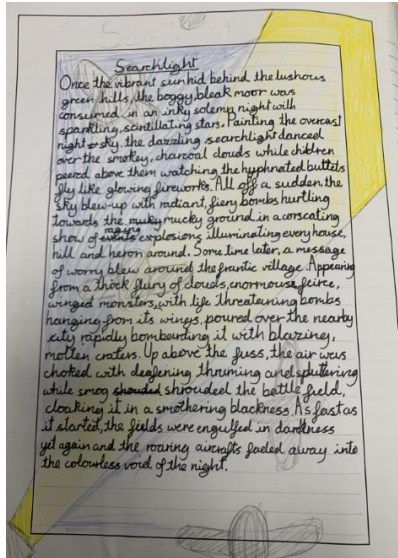 Searchlight
Once the vibrant sun hid behind the lushous
green hills, the boggy bleak moor was
consumed in an inky solemn night with
sparkling, scintillating stars. Painting the overcast
night sky, the dazzling searchlight danced
over the smokey, charcoal clouds while children
peered above them watching the hyphnated bullets
fly like glowing fireworks. All off a sudden, the
sky blew up with radiant, fiery bombs hurtling
towards the mucky ground in a corscating
show of raging explosions illuminating every house,
hill and heron around. Some time later, a message
of worry blew around the frantic village. Appearing
from a thick flury of clouds, enormouse, feirce,
winged monsters, with life threatening bombs
hanging from its wings, poured over the nearby
city rapidly bombarding it with blazing,
molten craters. Up above the fuss, the air was
choked with deafening thruming and spluttering
while smog shrouded the battle field,
cloaking it in a smothering blackness. As fast as
it started, the fields were engulfed in darkness
yet again and the roaring aircrafts faded away into
the colourless void of the night.